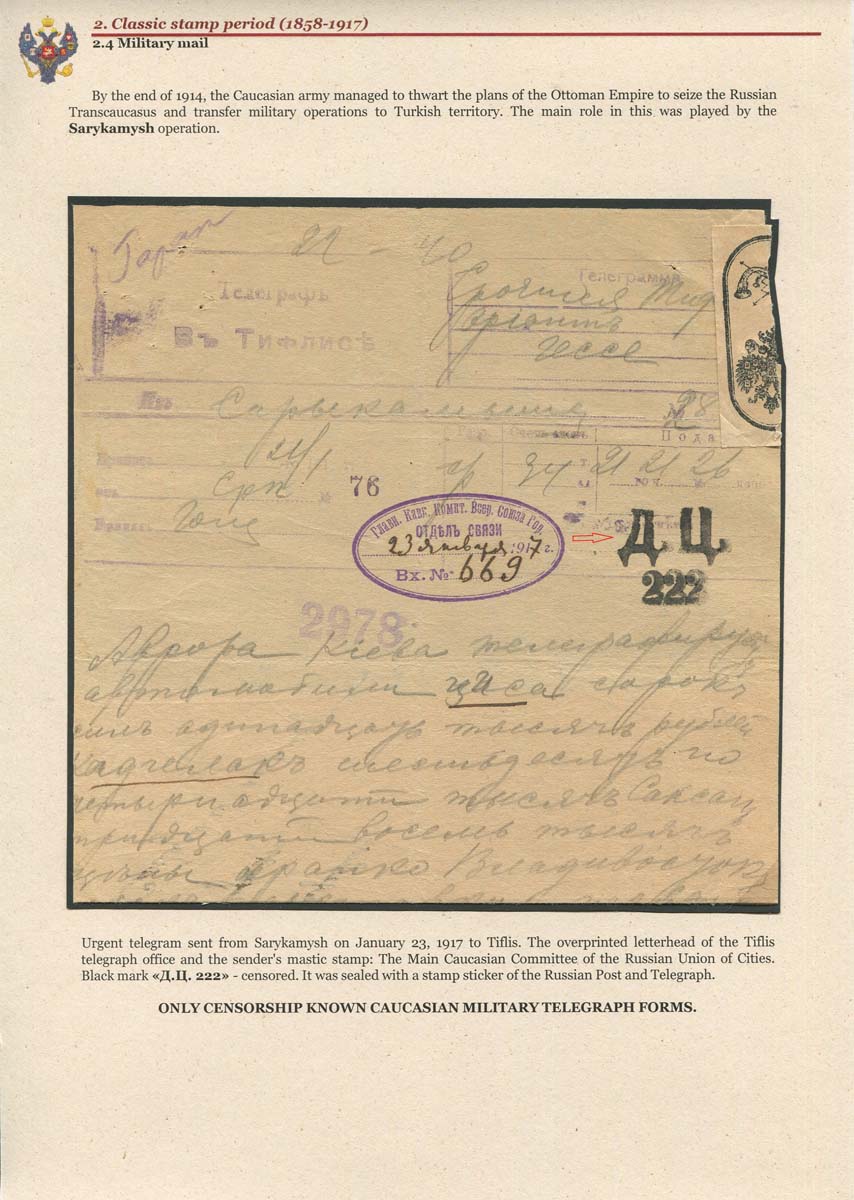 2. Classic stamp period (1858-1917)
2.4 Military mail
By the end of 1914, the Caucasian army managed to thwart the plans of the Ottoman Empire to seize the Russian
Transcaucasus and transfer military operations to Turkish territory. The main role in this was played by the
Sarykamysh operation.
22 - 40
Телеграфъ
Въ Тифлисѣ
Телеграмма
Срочная
Изъ
№ 28
Пода
24/1
34 21 21 26
76
Главн. Кавк. Комит. Всер. Союза Гор.
ОТДѢЛЪ СВЯЗИ
23 января 1917 г.
Вх. № 669
Д.Ц.
222
2978
Аврора Кіева
автомобили сорокъ
одинадцать тысячъ рублей
шестьдесятъ по
тысячъ Саксан
восемь тысячъ
франко Владивосток
Urgent telegram sent from Sarykamysh on January 23, 1917 to Tiflis. The overprinted letterhead of the Tiflis
telegraph office and the sender's mastic stamp: The Main Caucasian Committee of the Russian Union of Cities.
Black mark «Д.Ц. 222» - censored. It was sealed with a stamp sticker of the Russian Post and Telegraph.
ONLY CENSORSHIP KNOWN CAUCASIAN MILITARY TELEGRAPH FORMS.